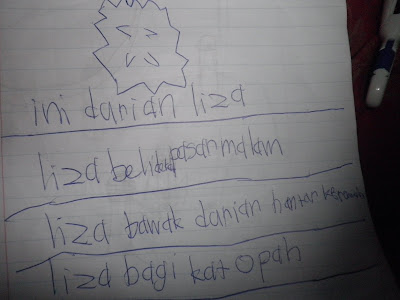 ini durian liza
liza beli dekat pasar malam
liza bawak durian hantar kerumah
liza bagi kat opah